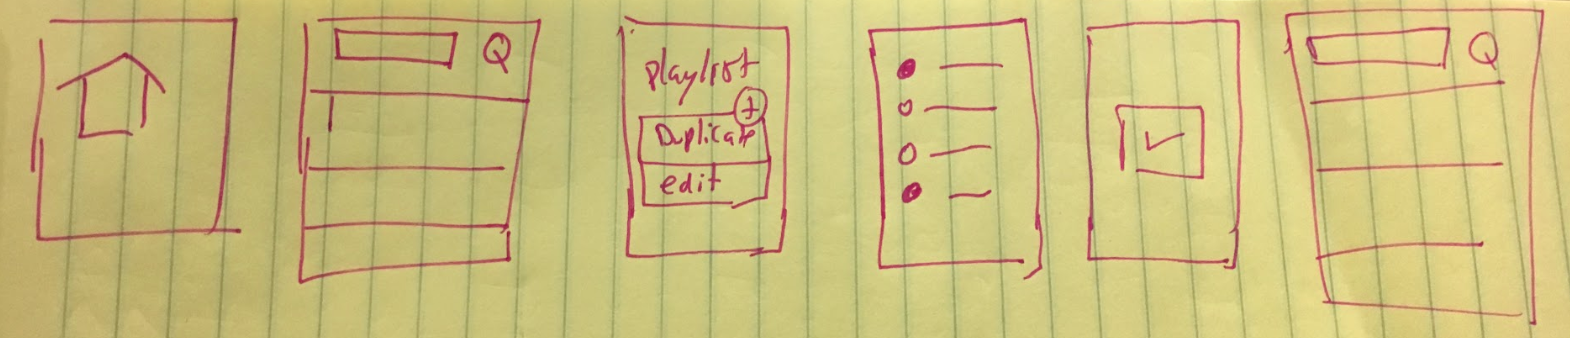 Q
playlist
+
Duplicate
edit
Q